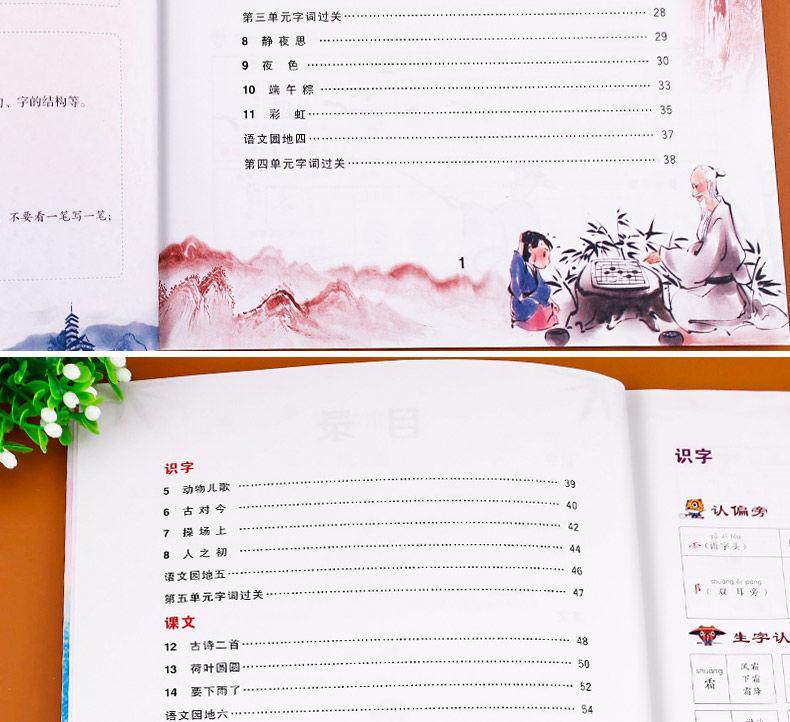 、字的结构等。
不要看一笔写一笔;
第三单元字词过关 28
8 静夜思 29
9 夜色 30
10 端午粽 33
11 彩虹 35
语文园地四 37
第四单元字词过关 38
1
目录
识字
5 动物儿歌 39
6 古对今 40
7 操场上 42
8 人之初 44
语文园地五 46
第五单元字词过关 47
课文
12 古诗二首 48
13 荷叶圆圆 50
14 要下雨了 52
语文园地六 54
识字
认偏旁
yǔ zì tóu
(雨字头)
shuāng ěr páng
阝(双耳旁)
生字认
shuāng
霜
风霜
下霜
霜降